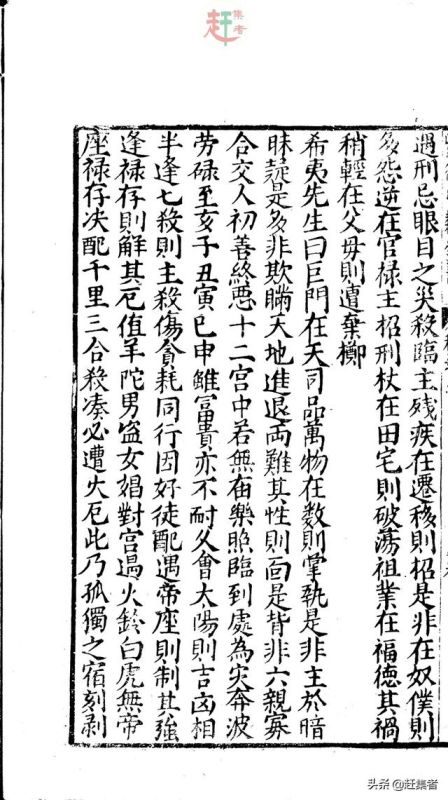 赶集者
遇刑忌眼目之災殺臨主殘疾在遷移則招是非在奴僕則
多怨逆在官祿主招刑杖在田宅則破蕩祖業在福德其禍
稍輕在父母則遭棄擲
希夷先生曰巨門在天司品萬物在數則掌執是非主於暗
昧疑是多非欺瞞天地進退兩難其性則面是背非六親寡
合交人初善終惡十二宮中若無廟樂照臨到處為災奔波
勞碌至亥子丑寅巳申雖富貴亦不耐久會太陽則吉凶相
半逢七殺則主殺傷貪耗同行因好徒配遇帝座則制其強
逢祿存則解其厄值羊陀男盜女娼對宮遇火鈴白虎無帝
座祿存决配千里三合殺湊必遭火厄此乃孤獨之宿刻剥
头条@赶集者